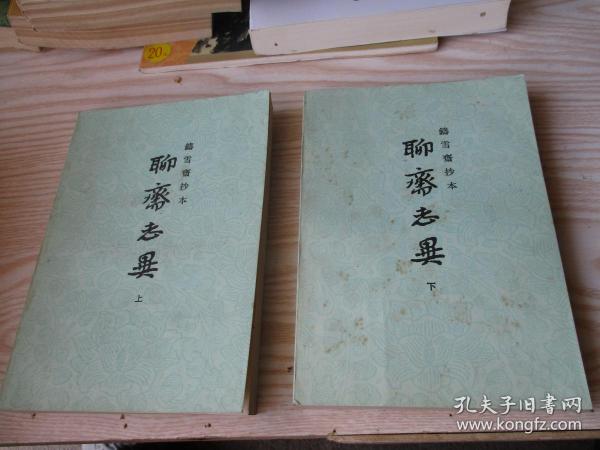 20
鑄雪齋抄本
聊齋志異
上
鑄雪齋抄本
聊齋志異
下
孔夫子旧书网
www.kongfz.com